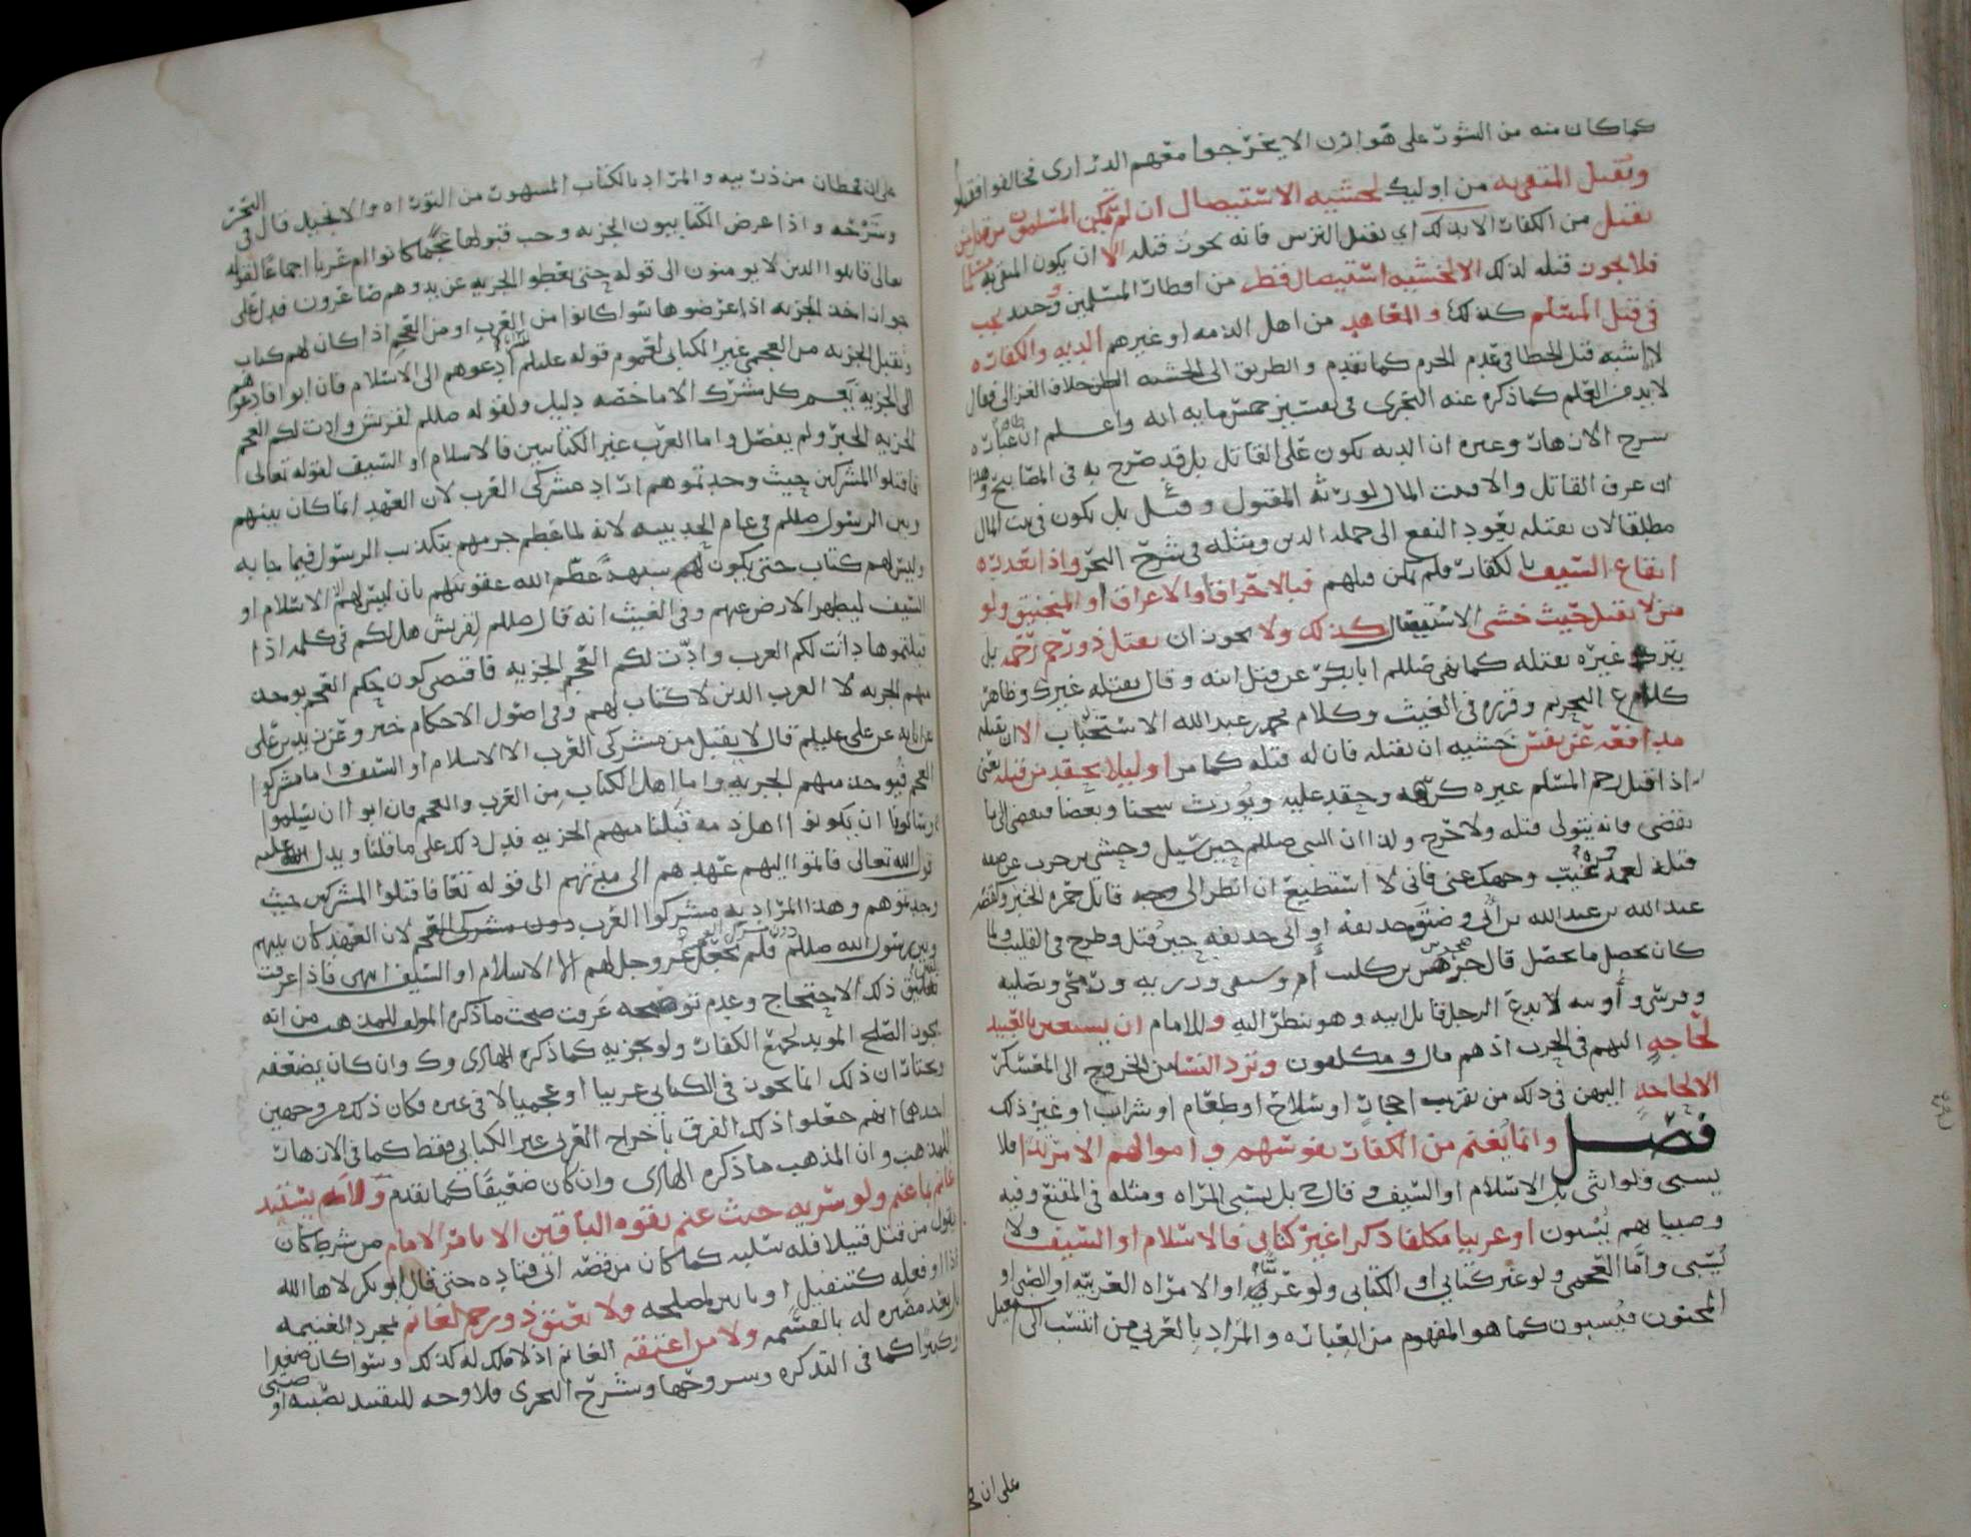 كما كان منه من الشور على هوازن الا يخرجوا معهم الدراري فخالفوا
وتقبل المتقى به من اوليك لخشية الاستيصال ان لم تمكن المسلمون من
بقتل من الكفار الا بذلك اي بقتل الترس فانه يجوز قتله الا ان يكون المتقى به مسلما
فلا يجوز قتله لذلك الا لخشية استيصال قطر من اقطار المسلمين وحينئذ يجب
في قتل المسلم كذلك والمعاهد من اهل الذمه او غيرهم الديه والكفاره
لا اشبه قتل الخطا في عدم الحرم كما تقدم والطريق الى الخشيه الظن خلاف الغزالي فقال
لا بد من العلم كما ذكره عنه النجري في تفسير خمس مايه ايه واعلم ان عبارة
شرح الازهار وغيره ان الديه تكون على القاتل بل قد صرح به في المصابيح وهذا
ان عرف القاتل والا فمن المال لورثة المقتول وقيل بل يكون في بيت المال
مطلقا لان بقتله يعود النفع الى جملة الدين ومثله في شرح البحر واذا تعذر
ايقاع السيف بالكفار فلم يمكن قتلهم فبالاحراق او الاغراق او المنجنيق ولو
من لا يقتل حيث خشي الاستيصال كذلك ولا يجوز ان يقتل ذو رحم رحمه بل
يترك غيره يقتله كما نهى صللم ابا بكر عن قتل ابنه وقال يقتله غيرك وظاهر
كلام ع التحريم وقرره في الغيث وكلام محمد بن عبدالله الاستحباب الا ان يقتله
مدافعه عن نفس خشيه ان يقتله فان له قتله كما مر او ليلا يحقد من قتله يعني
اذا قتل رحم المسلم غيره كرهه وحقد عليه ويورث شحنا وبغضا فيفضي الى ما
يفضي فانه يتولى قتله ولا حرج ولذا ان النبي صللم حين سيل وحشي بن حرب عن صفة
قتله لعمه حمزه غيب وجهك عني فاني لا استطيع ان انظر الى وجه قاتل حمزه الخبر وكقصة
عبد الله بن عبد الله بن ابي وضيق حذيفه او ابي حذيفه حين قتل وطرح في القليب ولما
كان يحصل ما يحصل قال
وفرشي و لا يدع الرجل قاتل ابيه وهو ينظر اليه وللامام ان يستعين بالعبيد
لحاجه اليهم في الحرب اذ هم مال ومكلفون وترد النسا من الخروج الى المعسكر
الا لحاجه اليهن في ذلك من تقريب احجار او سلاح او طعام او شراب او غير ذلك
فصل وانما يغنم من الكفار نفوسهم واموالهم الا مرتدا فلا
يسبى ولو انثى بل الاسلام او السيف وقال ح بل يسبى المراه ومثله في المقنع وفيه
وصبيانهم يسبون او عربيا مكلفا ذكرا غير كتابي فالاسلام او السيف ولا
يسبى واما العجمي ولو غير كتابي او الكتابي ولو عربيا او الا مراه العربيه او الصبي او
المجنون فيسبون كما هو المفهوم من العباره والمراد بالعربي من انتسب الى اسمعيل
على ان
على ان قحطان من ذريته والمراد بالكتاب المشهور من التوراه والانجيل قال في البحر
وشرحه واذا عرض الكتابيون الجزيه وجب قبولها عجما كانوا ام عربا اجماعا لقوله
تعالى قاتلوا الذين لا يومنون الى قوله حتى يعطوا الجزيه عن يد وهم صاغرون فدل على
جواز اخذ الجزيه اذا عرضوها سوا كانوا من العرب او من العجم اذا كان لهم كتاب
وتقبل الجزيه من العجمي غير الكتابي لعموم قوله عليلم ادعوهم الى الاسلام فان ابوا فادعوهم
الى الجزيه فعم كل مشرك الا ما خصه دليل ولقوله صللم لقريش وادت لكم العجم
الجزيه الخبر ولم يفصل واما العرب غير الكتابيين فالاسلام او السيف لقوله تعالى
فاقتلوا المشركين حيث وجدتموهم اراد مشركي العرب لان العهد انما كان بينهم
وبين الرسول صللم في عام الحديبيه لانه لما عظم جرمهم بتكذيب الرسول فيما جا به
وليس لهم كتاب حتى يكون لهم شبهة عظم الله عقوبتهم بان ليس لهم الا الاسلام او
السيف ليطهر الارض عنهم وفي الغيث انه قال صللم لقريش هل لكم في كلمه اذا
قبلتموها دانت لكم العرب وادت لكم العجم الجزيه فاقتضى كون حكم العجم يوخذ
منهم الجزيه لا العرب الذين لا كتاب لهم وفي اصول الاحكام خبر وعن زيد بن علي
عن ابايه عن علي عليلم قال لا يقبل من مشركي العرب الا الاسلام او السيف واما مشركوا
العجم فيوخذ منهم الجزيه واما اهل الكتاب من العرب والعجم فان ابوا ان يسلموا
وسالونا ان يكونوا اهل ذمه قبلنا منهم الجزيه فدل ذلك على ما قلنا ويدل عليه
قول الله تعالى فاتموا اليهم عهدهم الى مدتهم الى قوله تعا فاقتلوا المشركين حيث
وجدتموهم وهذا المراد به مشركوا العرب دون مشركي العجم لان العهد كان بينهم
وبين رسول الله صللم فلم يجعل عز وجل لهم الا الاسلام او السيف انتهى فاذا عرفت
ذلك الاحتجاج وعدم توضيحه عرفت صحت ما ذكره المولف للمذهب من انه
يجوز الصلح الموبد لجميع الكفار ولو بجزيه كما ذكره الهادي وك وان كان يضعفه
ويختار ان ذلك انما يجوز في الكتابي عربيا او عجميا لا في غيره فكان ذلك من وجهين
احدهما انهم جعلوا ذلك الفرق باخراج العربي غير الكتابي فقط كما في الازهار
للمذهب وان المذهب ما ذكره الهادي وان كان ضعيفا كما تقدم ولا يستبد
غانم بما غنم ولو سريه حيث غنم بقوه الباقين الا بامر الامام من شرط كان
يقول من قتل قتيلا فله سلبه كما كان من قصة ابي قتاده حتى قال ابو بكر لاها الله
اذا او فعله كتنفيل او يا بني لمصلحه ولا يعتق ذو رحم لغانم بمجرد الغنيمه
بل بعد مصيره له بالقسمه ولا من اعتقه الغانم اذ لا ملك له كذلك وسوا كان صغيرا
وكبيرا كما في التذكره وشروحها وشرح البحري فلا وجه للتقييد بصبيه او صبي